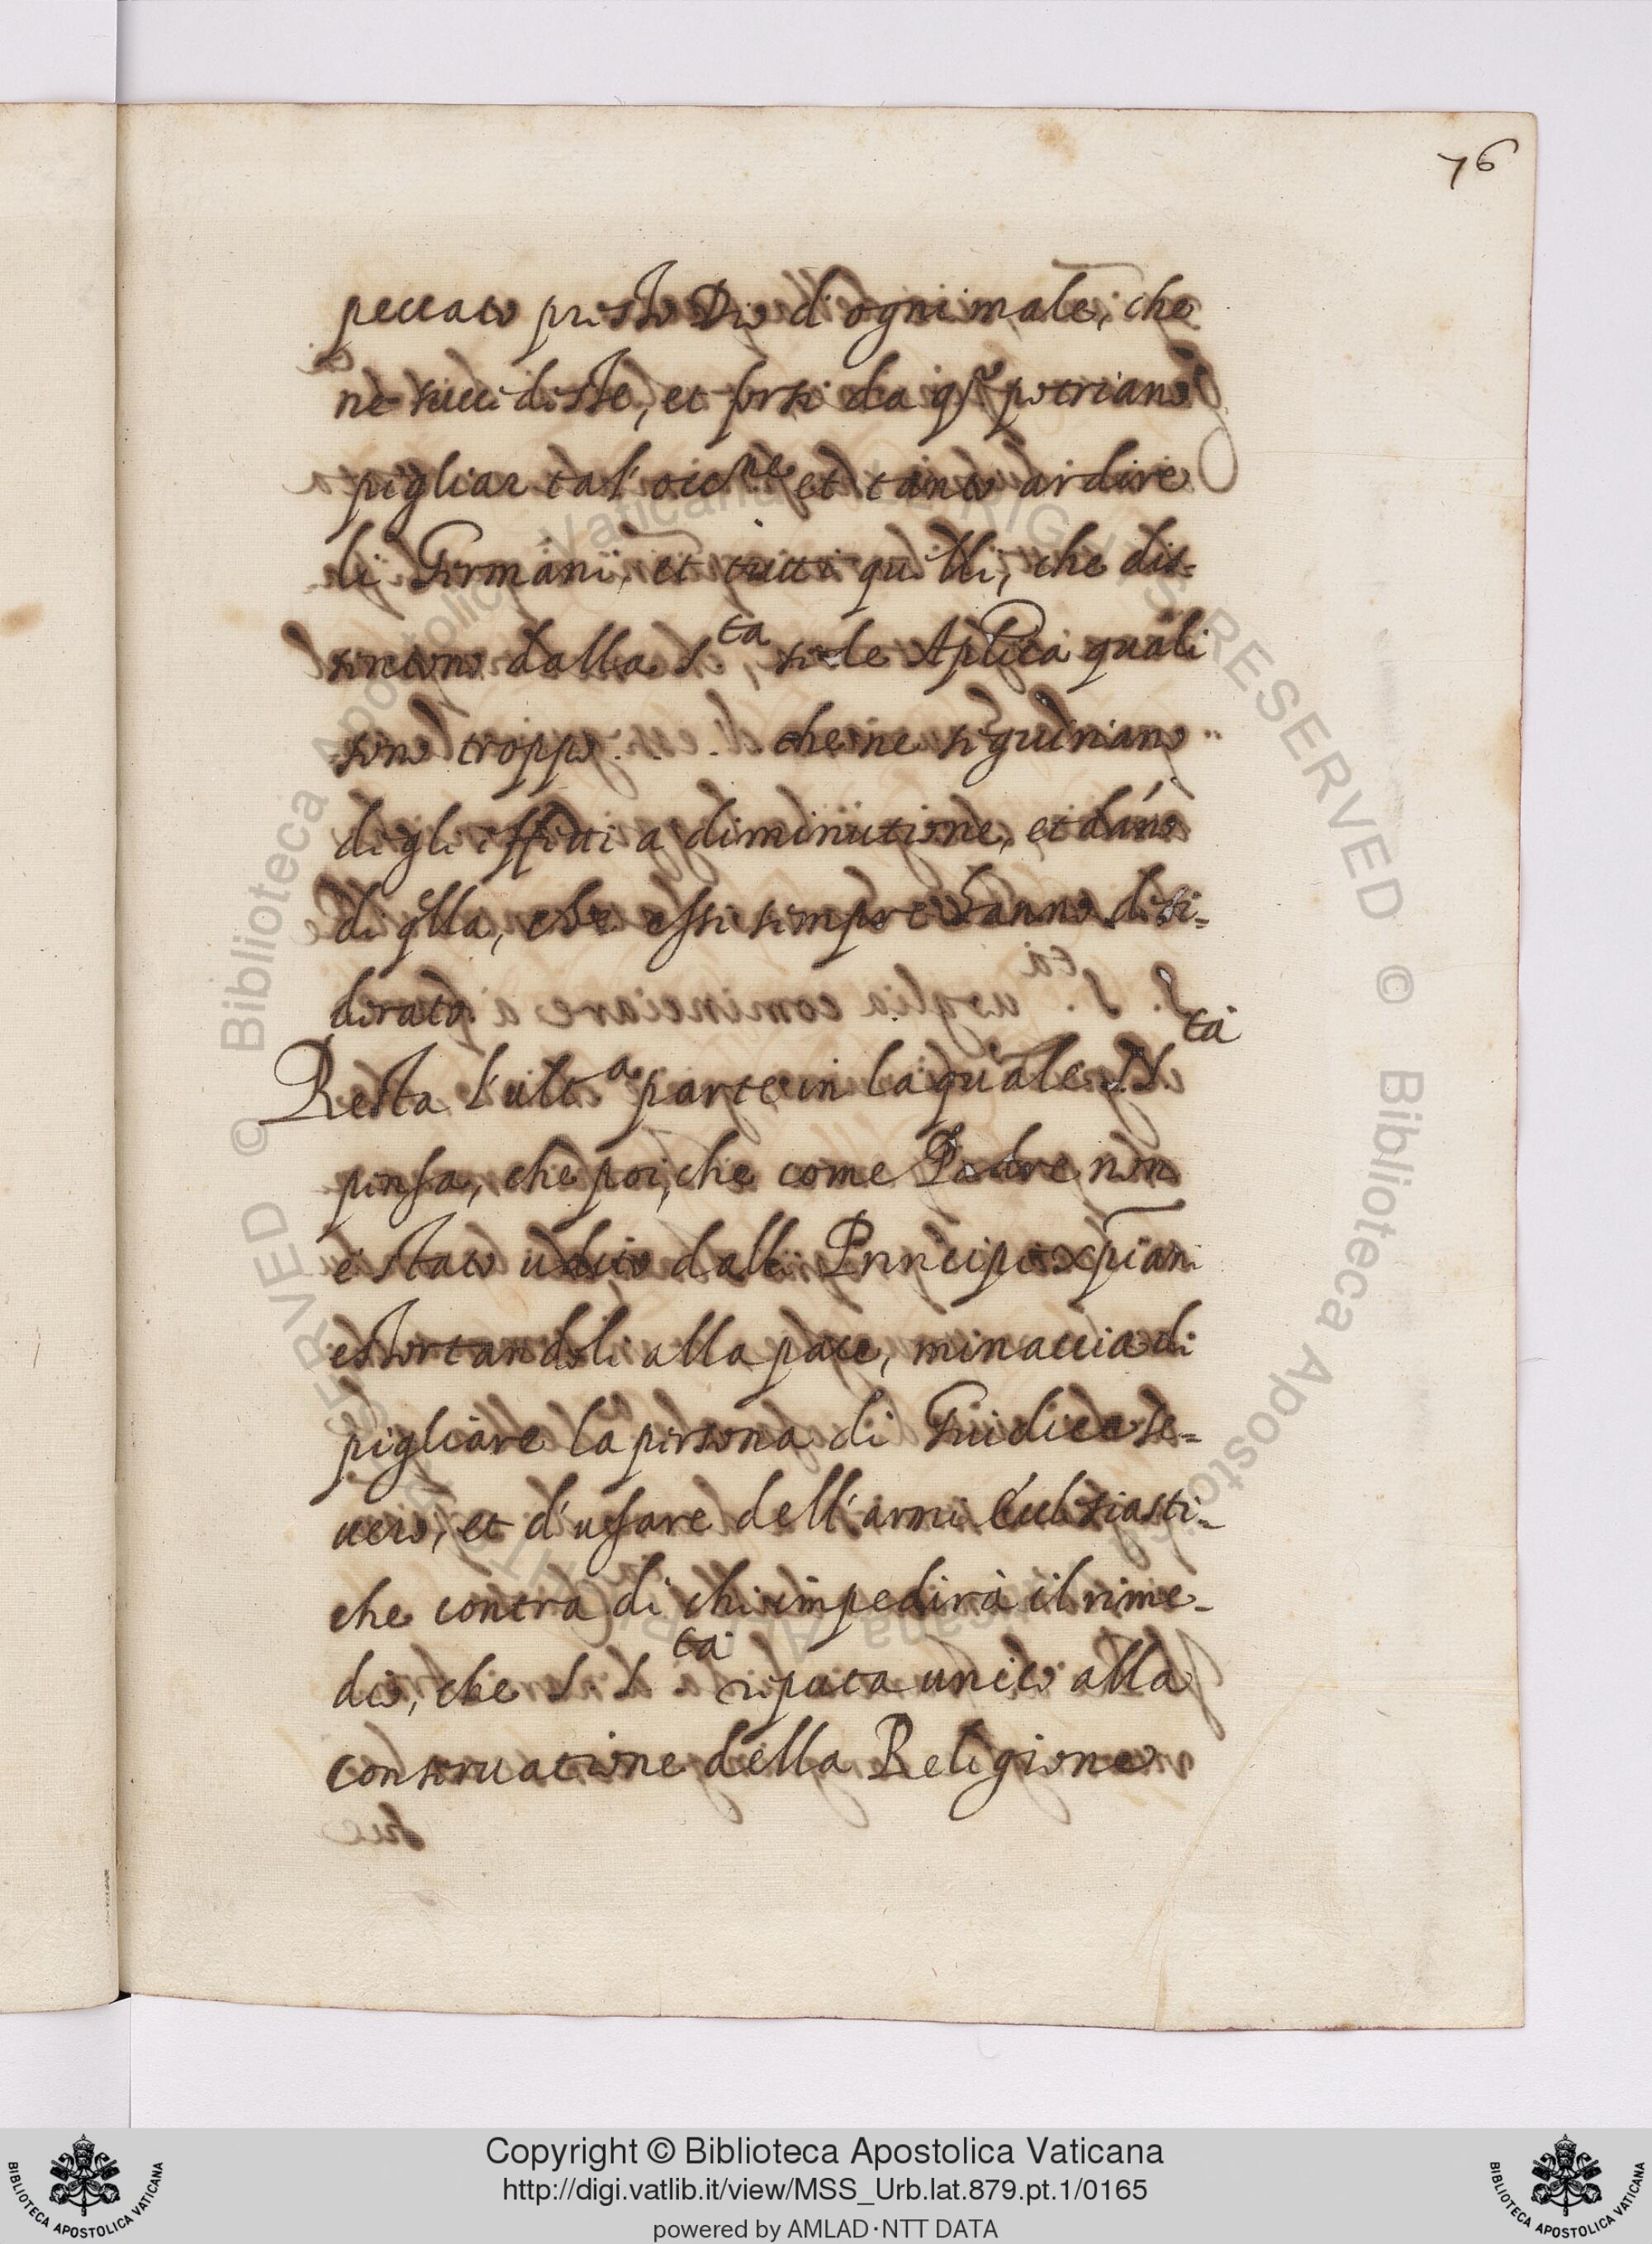 76
peccato presto Dio di ogni male, che
ne succidesse, et forse da q.sto potriano
pigliar tal' occ.ne et tanto ardire
li Germani, et tutti quelli, che dis=
sentono dalla S.ta sede Aplica quali
sono troppo . . . . che ne seguiriano
degli effetti a diminutione, et dano
di qlla, che essi sempre hanno desi=
derato.
Resta l'ult.a parte in la quale S. S.ta
pensa, che poi, che come Padre non
è stato udito dalli Principi xpiani
estortandoli alla pace, minaccia di
pigliare la persona di Giudice se=
uero, et d'usare dell'armi Eccl.siasti=
che contra di chi impedirà il rime=
dio, che S. S.ta reputa unico alla
conseruatione della Religione
Copyright © Biblioteca Apostolica Vaticana
http://digi.vatlib.it/view/MSS_Urb.lat.879.pt.1/0165
powered by AMLAD·NTT DATA
BIBLIOTECA APOSTOLICA VATICANA
BIBLIOTECA APOSTOLICA VATICANA